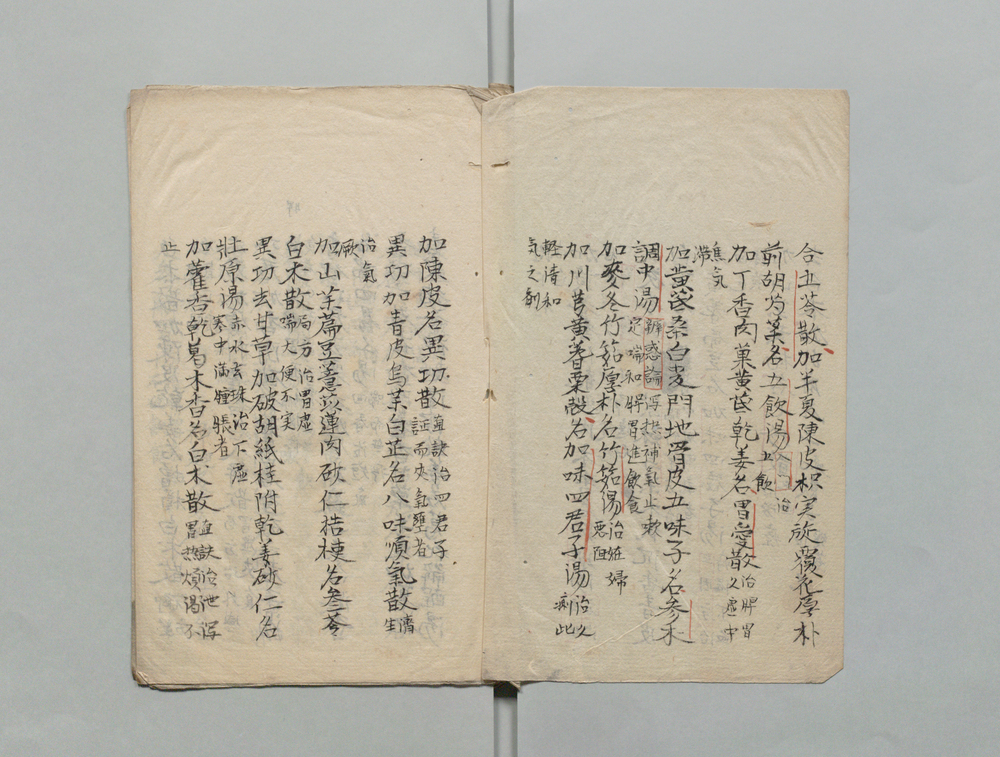 合五苓散加半夏陳皮枳実旋覆花厚朴
前胡芍薬名五飲湯 治五飲
加丁香肉菓黄茋乾姜名胃愛散 治脾胃久虚中
焦気滞
加黄茋桑白麦門地骨皮五味子名参朮
調中湯 辨惑論瀉熱補氣止嗽定喘和脾胃進飲食
加麥冬竹筎厚朴名竹筎湯 治妊婦悪阻
加川芎黄蓍粟殻名加味四君子湯 治久痢此
軽清和気之剤
加陳皮名異功散 直訣治四君子証而夾氣壅者
異功加青皮烏薬白芷名八味順氣散 済生
治氣厥
加山薬扁豆薏苡蓮肉砂仁桔梗名参苓
白朮散 局方治胃虚喘大便不実
異功去甘草加破胡紙桂附乾姜砂仁名
壮原湯 赤水玄珠治下虚寒中満腫脹者
加藿香乾葛木香名白朮散 直訣治泄瀉胃熱煩渇不
止